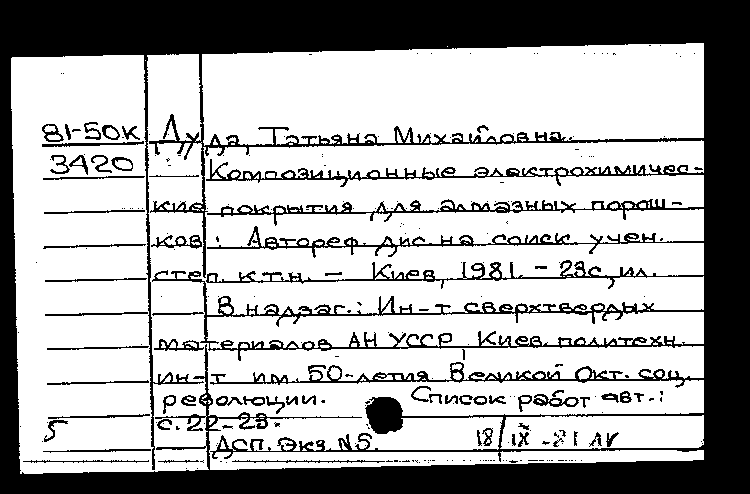 81-50к Дуда, Татьяна Михайловна.
3420 Композиционные электрохимичес-
кие покрытия для алмазных порош-
ков: Автореф. дис. на соиск. учен.
степ. к.т.н. – Киев, 1981. – 23с., ил.
В надзаг.: Ин-т сверхтвердых
материалов АН УССР, Киев. политехн.
ин-т им. 50-летия Великой Окт. соц.
революции. Список работ авт.:
5 с. 22-23.
ДСП. Экз. N5. 18/IX-81